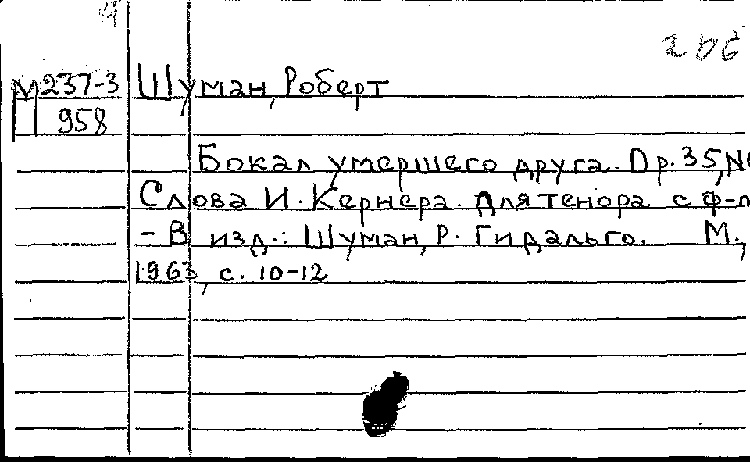 М 237-3
958
Шуман, Роберт
Бокал умершего друга. Op. 35, N
Слова И. Кернера. Для тенора с ф-п
- В изд.: Шуман, Р. Гидальго. М.,
1963, с. 10-12